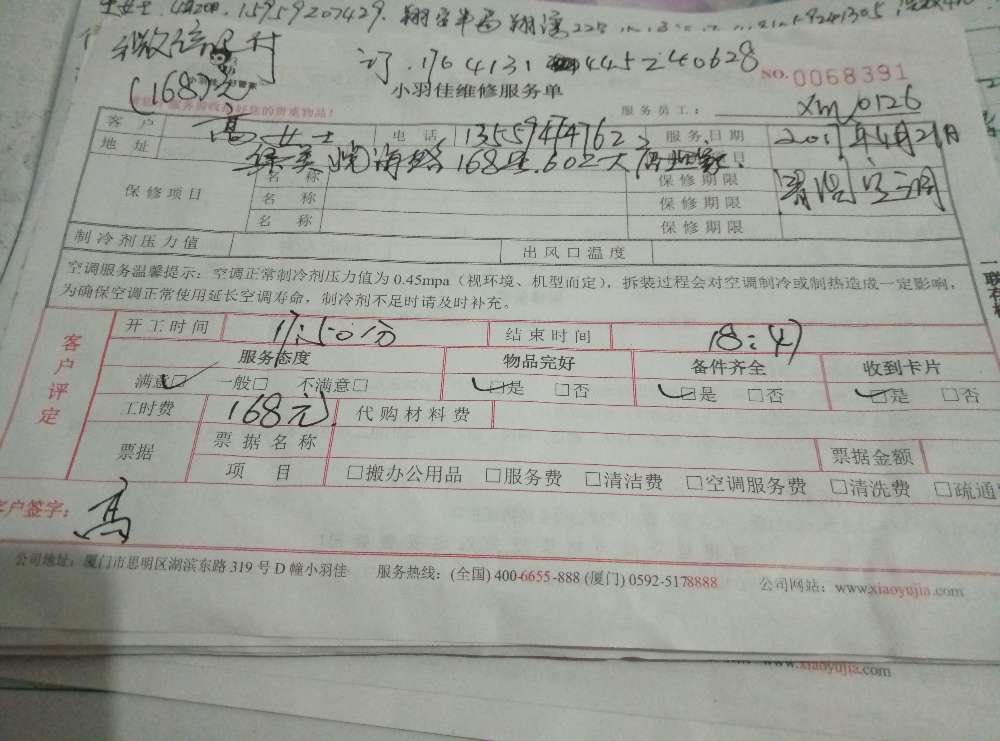 15959207429.
订.1704131 445240628
(168)元
NO. 0068391
小羽佳维修服务单
服务员工: xm0126
客户 高女士 电话 13559474762 服务日期 2017年4月21日
地址 168号.602
保修项目 名称 保修期限
名称 保修期限
名称 保修期限
制冷剂压力值 出风口温度
空调服务温馨提示:空调正常制冷剂压力值为 0.45mpa(视环境、机型而定),拆装过程会对空调制冷或制热造成一定影响,
为确保空调正常使用延长空调寿命,制冷剂不足时请及时补充。
客户评定
开工时间 17:50分 结束时间 18:47
服务态度 物品完好 备件齐全 收到卡片
满意□ 一般□ 不满意□ □是 □否 □是 □否 □是 □否
工时费 168元 代购材料费
票据 票据名称 票据金额
项目 □搬办公用品 □服务费 □清洁费 □空调服务费 □清洗费 □疏通
客户签字: 高
公司地址:厦门市思明区湖滨东路 319 号 D 幢小羽佳 服务热线:(全国) 400-6655-888 (厦门) 0592-5178888 公司网站:www.xiaoyujia.com
www.xiaoyujia.com